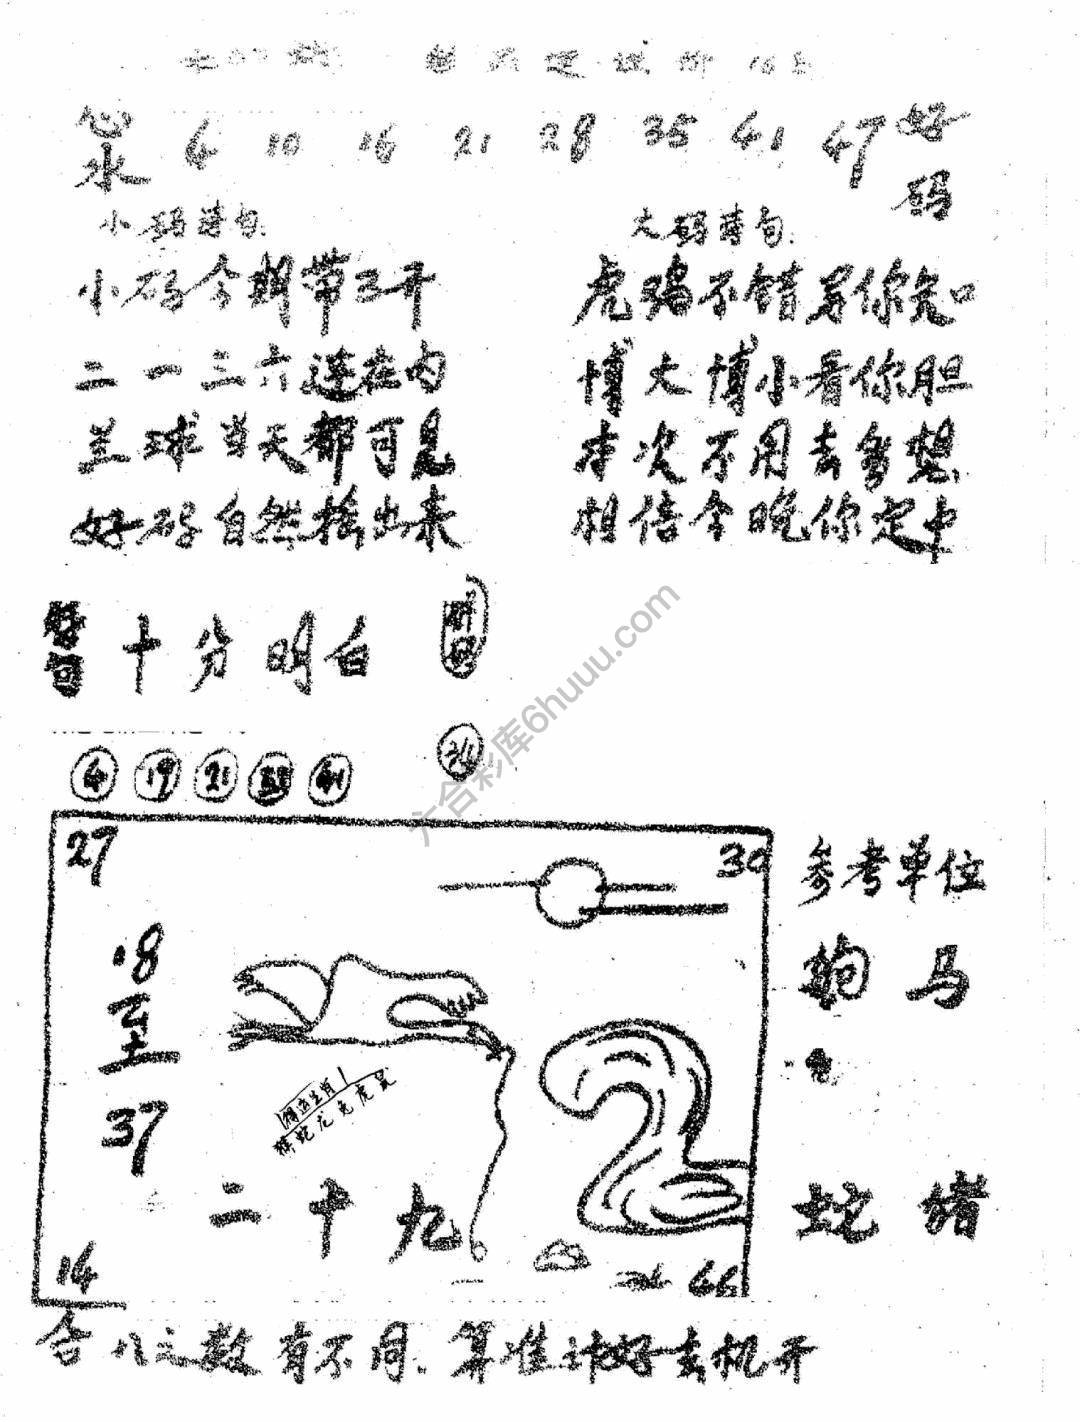 心水 4 10 16 21 28 35 41 47 好码
小码诗句: 大码诗句:
小码今期带3开
二一三六连在内
兰球当天都可见
好码自然拾出来
虎鸡不错另你知口
博大博小看你胆
本次不用去多想
相信今晚你定中
十分明白
4 19 21 33 41
六合彩库6huuu.com
27 30
参考单位
18至37
马
精选生肖
猴蛇龙兔虎鼠
二十九
蛇 猪
14 46
合八之数有不同.算准计好去机开